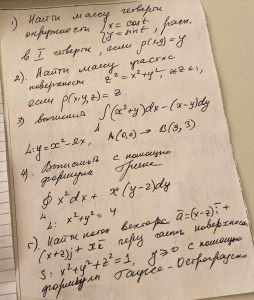 1) Найти массу четверти
окружности { x = cost
y = sint, расп.
в I четверти, если ρ(x,y) = y
2). Найти массу участка
поверхности z² = x²+y², 0≤z≤1,
если ρ(x,y,z) = z.
3) вычислить ∫(x²+y)dx-(x-y)dy
L
L: y = x²-2x, A(0,0) → B(3,3)
4) Вычислить с помощью
формулы Грина
∮ x²dx + x(y-2)dy
L
L: x²+y² = 4
5). Найти поток вектора a̅ = (x-z)i̅ +
(x+z)j̅ + xk̅ через часть поверхности
S: x²+y²+z² = 1, y≥0 с помощью
формулы Гаусса-Остроградского